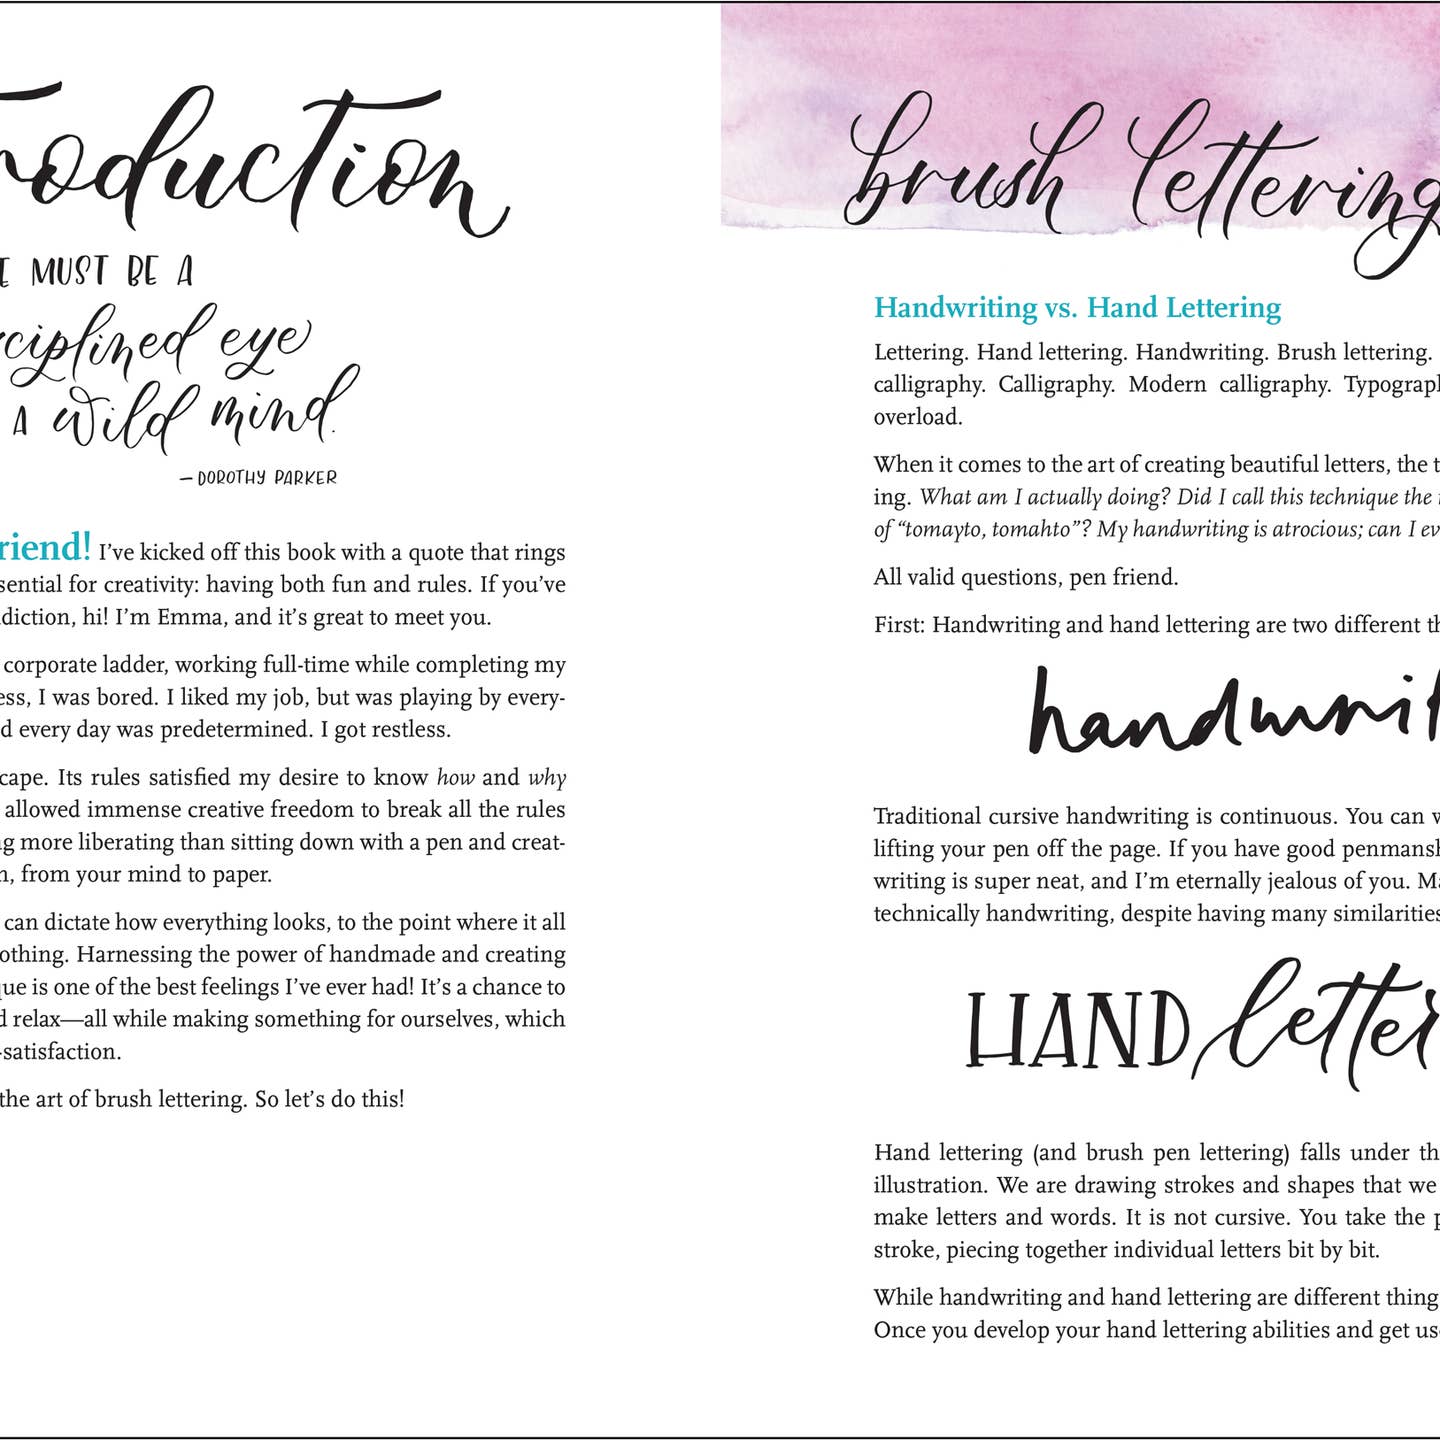 roduction
MUST BE A
ciplined eye
A wild mind.
—DOROTHY PARKER
riend! I've kicked off this book with a quote that rings
sential for creativity: having both fun and rules. If you've
diction, hi! I'm Emma, and it's great to meet you.
corporate ladder, working full-time while completing my
ess, I was bored. I liked my job, but was playing by every-
d every day was predetermined. I got restless.
cape. Its rules satisfied my desire to know how and why
allowed immense creative freedom to break all the rules
g more liberating than sitting down with a pen and creat-
n, from your mind to paper.
can dictate how everything looks, to the point where it all
othing. Harnessing the power of handmade and creating
que is one of the best feelings I've ever had! It's a chance to
d relax—all while making something for ourselves, which
-satisfaction.
the art of brush lettering. So let's do this!
brush lettering
Handwriting vs. Hand Lettering
Lettering. Hand lettering. Handwriting. Brush lettering.
calligraphy. Calligraphy. Modern calligraphy. Typograp
overload.
When it comes to the art of creating beautiful letters, the t
ing. What am I actually doing? Did I call this technique the
of “tomayto, tomahto”? My handwriting is atrocious; can I ev
All valid questions, pen friend.
First: Handwriting and hand lettering are two different th
handwrit
Traditional cursive handwriting is continuous. You can w
lifting your pen off the page. If you have good penmansh
writing is super neat, and I'm eternally jealous of you. Ma
technically handwriting, despite having many similarities
HAND letter
Hand lettering (and brush pen lettering) falls under th
illustration. We are drawing strokes and shapes that we
make letters and words. It is not cursive. You take the p
stroke, piecing together individual letters bit by bit.
While handwriting and hand lettering are different thing
Once you develop your hand lettering abilities and get us